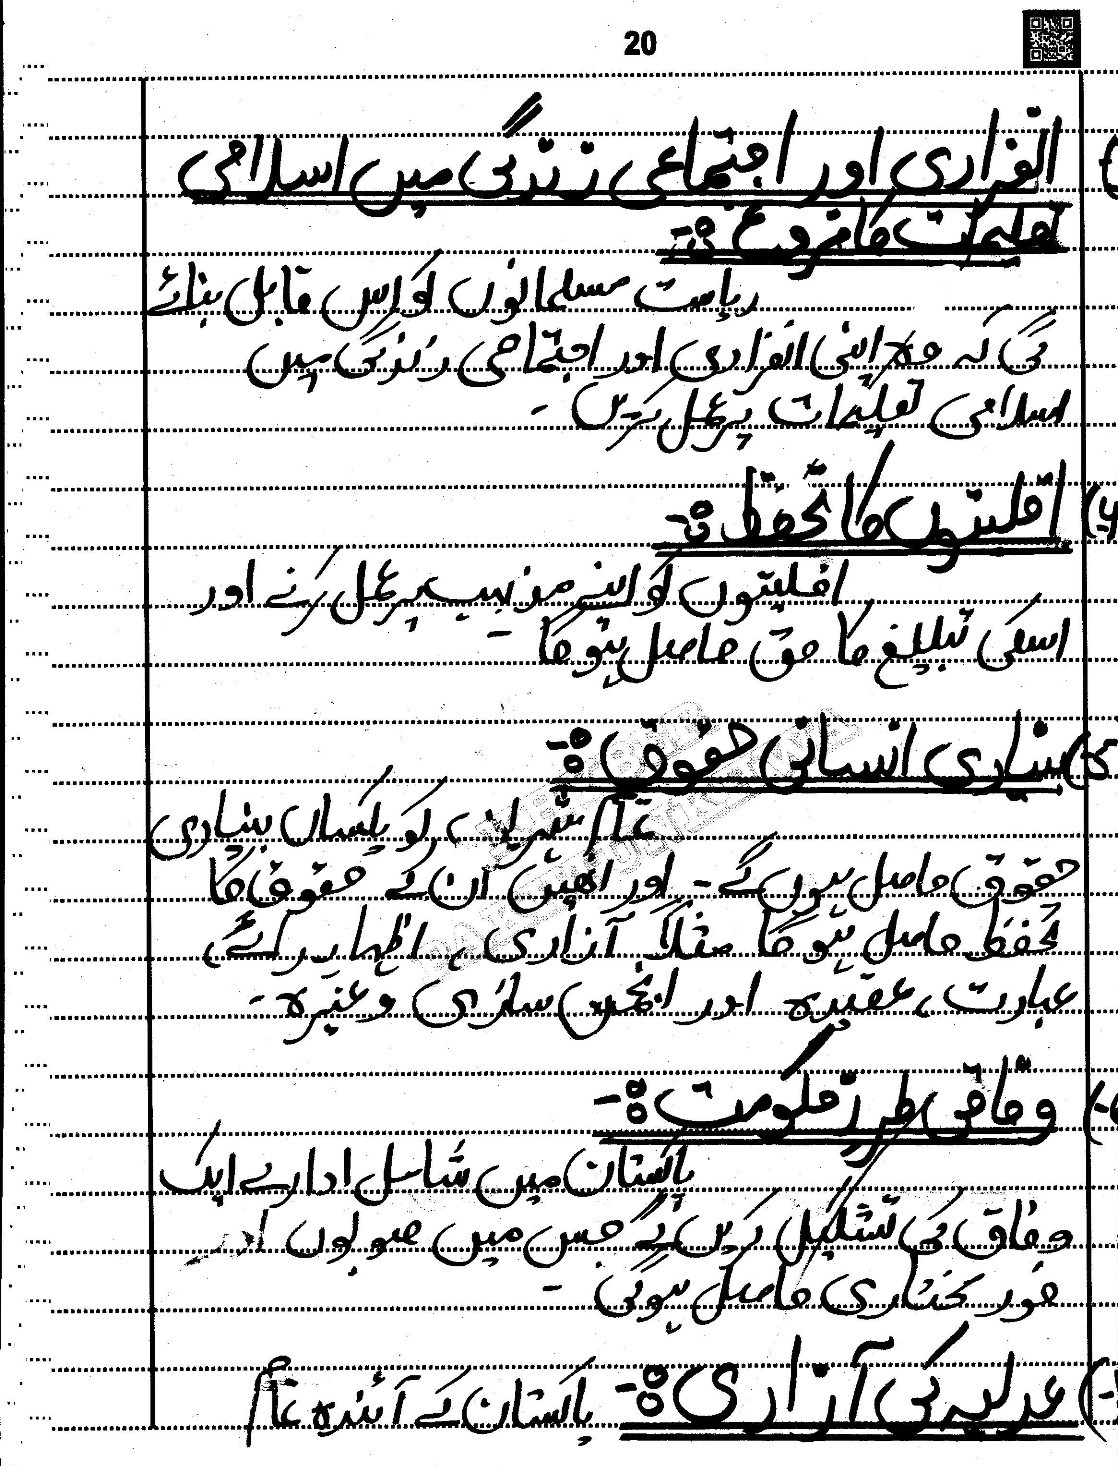 20
انفرادی اور اجتماعی زندگی میں اسلامی
تعلیمات کا فروغ :-
ریاست مسلمانوں کو اس قابل بنائے
گی کہ وہ اپنی انفرادی اور اجتماعی زندگی میں
اسلامی تعلیمات پر عمل کریں -
4) اقلیتوں کا تحفظ :-
اقلیتوں کو اپنے مذہب پر عمل کرنے اور
اسکی تبلیغ کا حق حاصل ہوگا -
5) بنیادی انسانی حقوق :-
تمام شہریوں کو یکساں بنیادی
حقوق حاصل ہوں گے - اور انھیں ان کے حقوق کا
تحفظ حاصل ہوگا مثلاً آزادی، اظہار رائے،
عبادت، عقیدہ اور انجمن سازی وغیرہ -
وفاقی طرز حکومت :-
پاکستان میں شامل ادارے ایک
وفاق کی تشکیل کریں گے جس میں صوبوں
خود مختاری حاصل ہوگی -
عدلیہ کی آزادی :- پاکستان کے آئندہ تمام